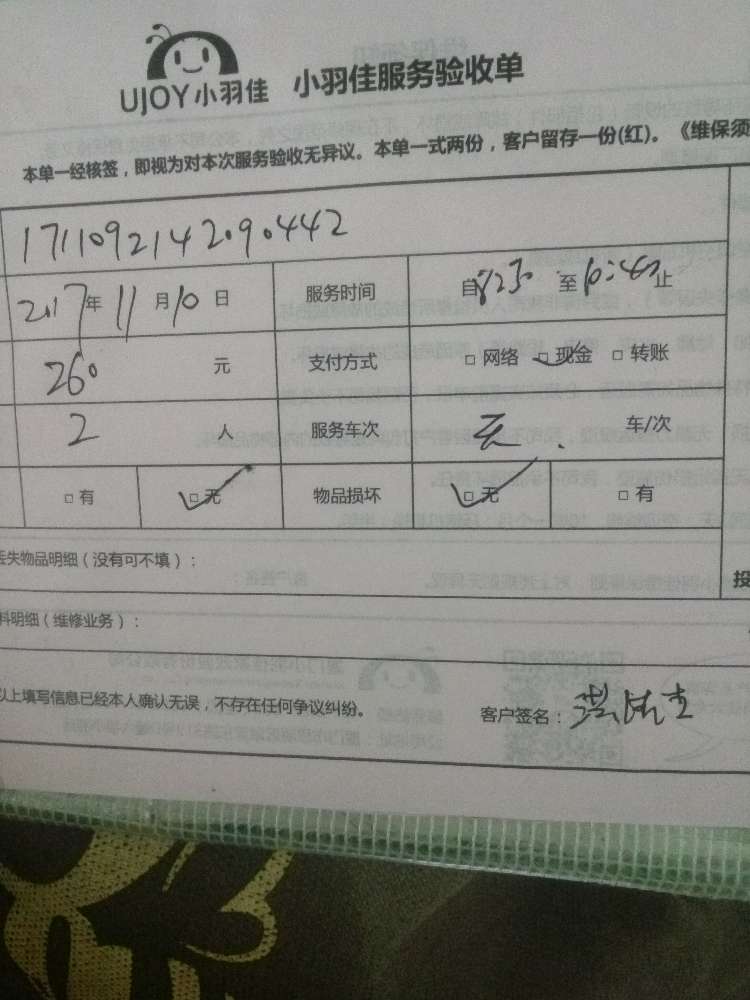 UJOY小羽佳 小羽佳服务验收单
本单一经核签，即视为对本次服务验收无异议。本单一式两份，客户留存一份(红)。《维保须
1711092142090442
2017年11月10日 服务时间 自8:30 至10:40止
260 元 支付方式 □网络 □现金 □转账
2 人 服务车次 无 车/次
□有 □无 物品损坏 □无 □有
丢失物品明细（没有可不填）：
投
料明细（维修业务）：
以上填写信息已经本人确认无误，不存在任何争议纠纷。 客户签名：